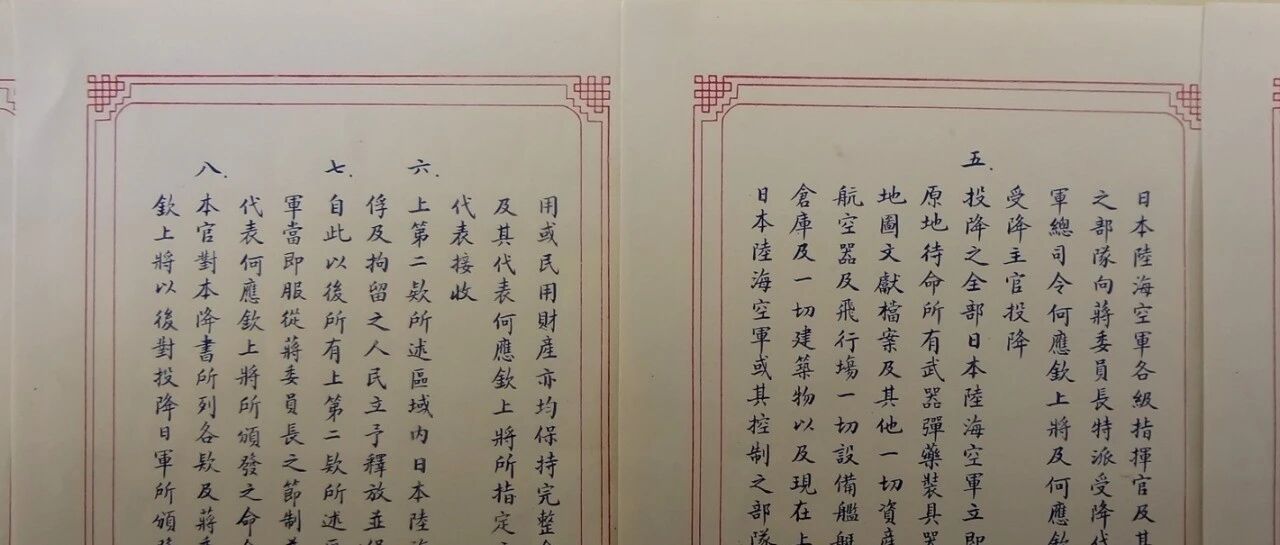 日本陸海空軍各級指揮官及其
之部隊向蔣委員長特派受降代
軍總司令何應欽上將及何應欽
受降主官投降
五. 投降之全部日本陸海空軍立即
原地待命所有武器彈藥裝具器
地圖文獻檔案及其他一切資產
航空器及飛行場一切設備艦艇
倉庫及一切建築物以及現在上
日本陸海空軍或其控制之部隊
用或民用財產亦均保持完整
及其代表何應欽上將所指定
代表接收
六. 上第二欵所述區域內日本陸
俘及拘留之人民立予釋放並保
七. 自此以後所有上第二欵所述
軍當即服從蔣委員長之節制
代表何應欽上將所頒發之命
八. 本官對本降書所列各欵及蔣委
欽上將以後對投降日軍所頒發